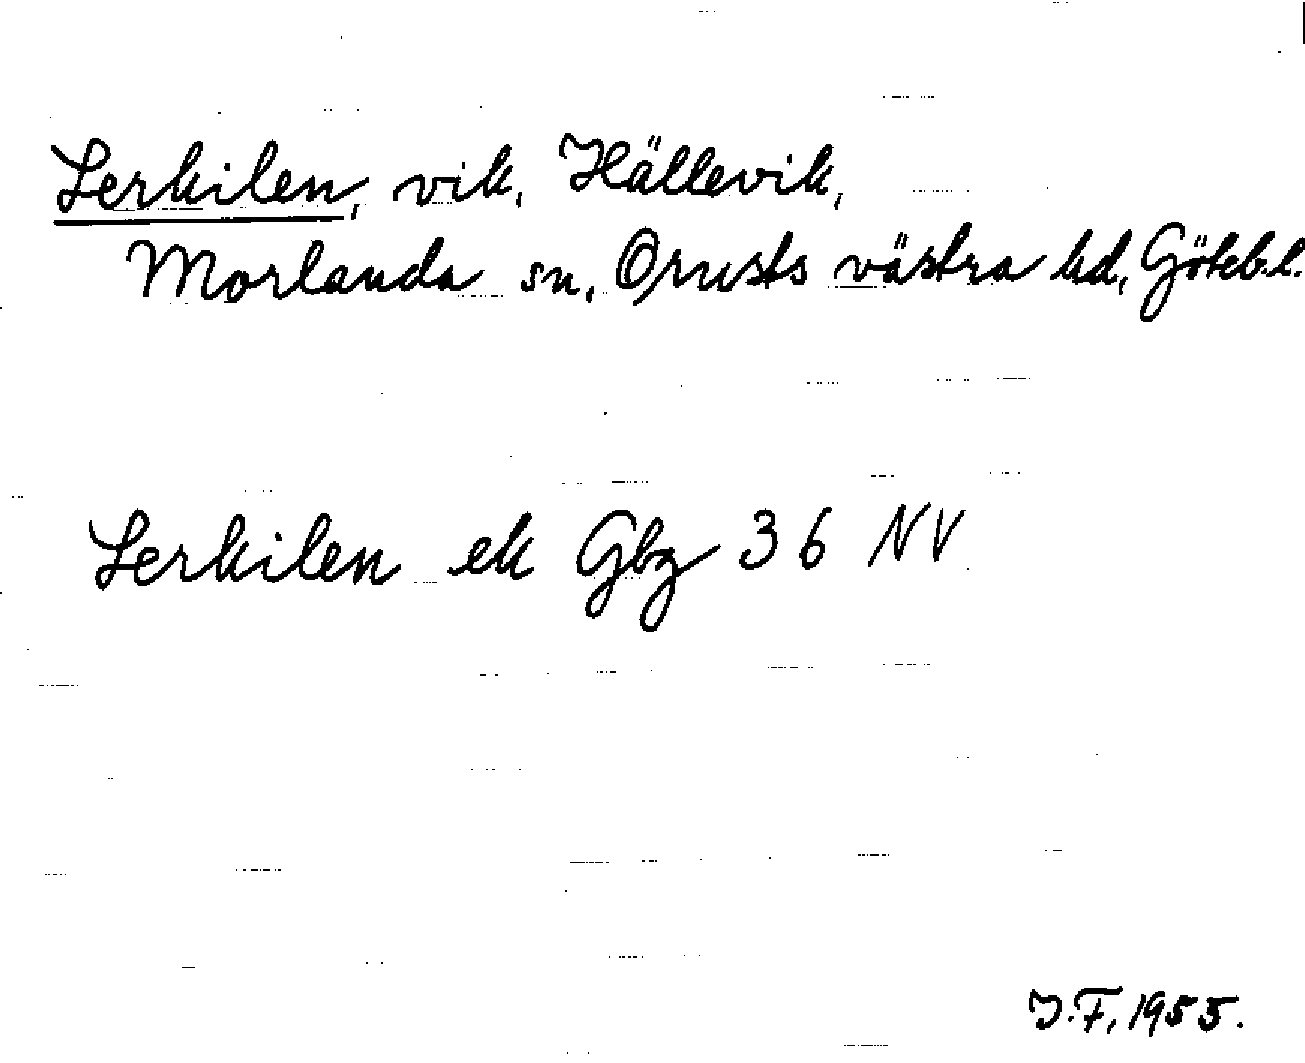 Lerkilen, vik, Hällevik,
Morlanda sn, Orusts västra hd, Göteb.l.
Lerkilen ek Gbg 36 NV
J.F. 1955.